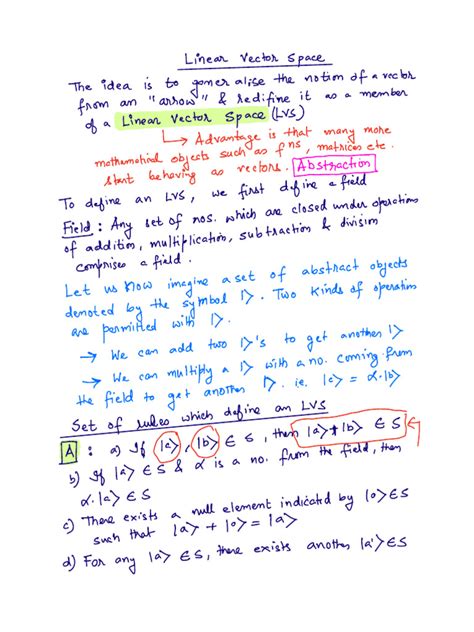 Linear Vector Space
The idea is to generalise the notion of a vector
from an "arrow" & redifine it as a member
of a Linear Vector Space (LVS)
↳ Advantage is that many more
mathematical objects such as fⁿˢ, matrices etc.
start behaving as vectors. Abstraction
To define an LVS, we first define a field
Field : Any set of nos. which are closed under operations
of addition, multiplication, subtraction & division
comprises a field.
Let us now imagine a set of abstract objects
denoted by the symbol |>. Two kinds of operations
are permitted with |>.
→ We can add two |>'s to get another |>
→ We can multiply a |> with a no. coming from
the field to get another |>. ie. |c> = α.|b>
Set of rules which define an LVS
A : a) If |a>, |b> ∈ S, then |a>+|b> ∈ S
b) If |a> ∈ S & α is a no. from the field, then
α.|a> ∈ S
c) There exists a null element indicated by |0> ∈ S
such that |a> + |0> = |a>
d) For any |a> ∈ S, there exists another |a'> ∈ S